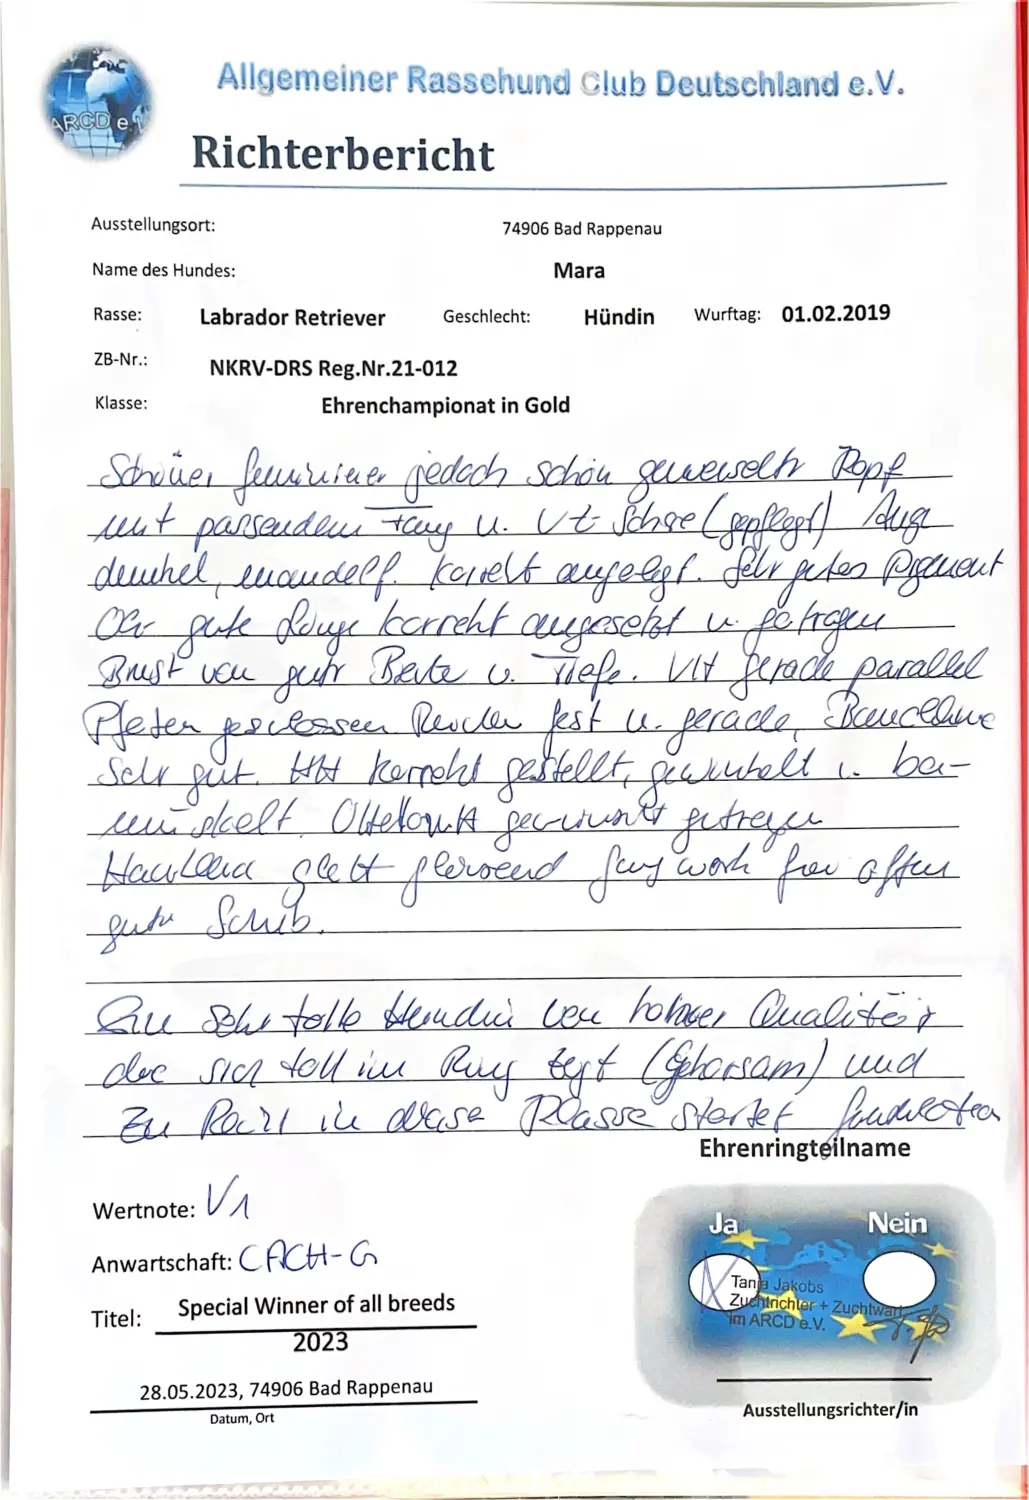 Allgemeiner Rassehund Club Deutschland e.V.
ARCD e.V
Richterbericht
Ausstellungsort: 74906 Bad Rappenau
Name des Hundes: Mara
Rasse: Labrador Retriever Geschlecht: Hündin Wurftag: 01.02.2019
ZB-Nr.: NKRV-DRS Reg.Nr.21-012
Klasse: Ehrenchampionat in Gold
Schöner femininer jedoch schön gemeiselter Kopf
mit passendem Fang u. vt Schere (gepflegt) Auge
dunkel, mandelf. korrekt angelegt. Sehr gutes Pigment
Ohr gute Länge korrekt angesetzt u. getragen
Brust von guter Breite u. Tiefe. VH gerade parallel
Pfoten geschlossen Rücken fest u. gerade, Bauchlinie
sehr gut. HH korrekt gestellt, gewinkelt u. be-
muskelt. getragen
Haarkleid glatt glänzend Gangwerk frei offen
guter Schub.
Eine sehr tolle Hündin von hoher Qualität
die sich toll im Ring zeigt (Gehorsam) und
zu Recht in diese Klasse startet
Ehrenringteilname
Wertnote: V1
Anwartschaft: CACH-G
Titel: Special Winner of all breeds
2023
28.05.2023, 74906 Bad Rappenau
Datum, Ort
Ja Nein
X
Tanja Jakobs
Zuchtrichter + Zuchtwart
im ARCD e.V.
Ausstellungsrichter/in